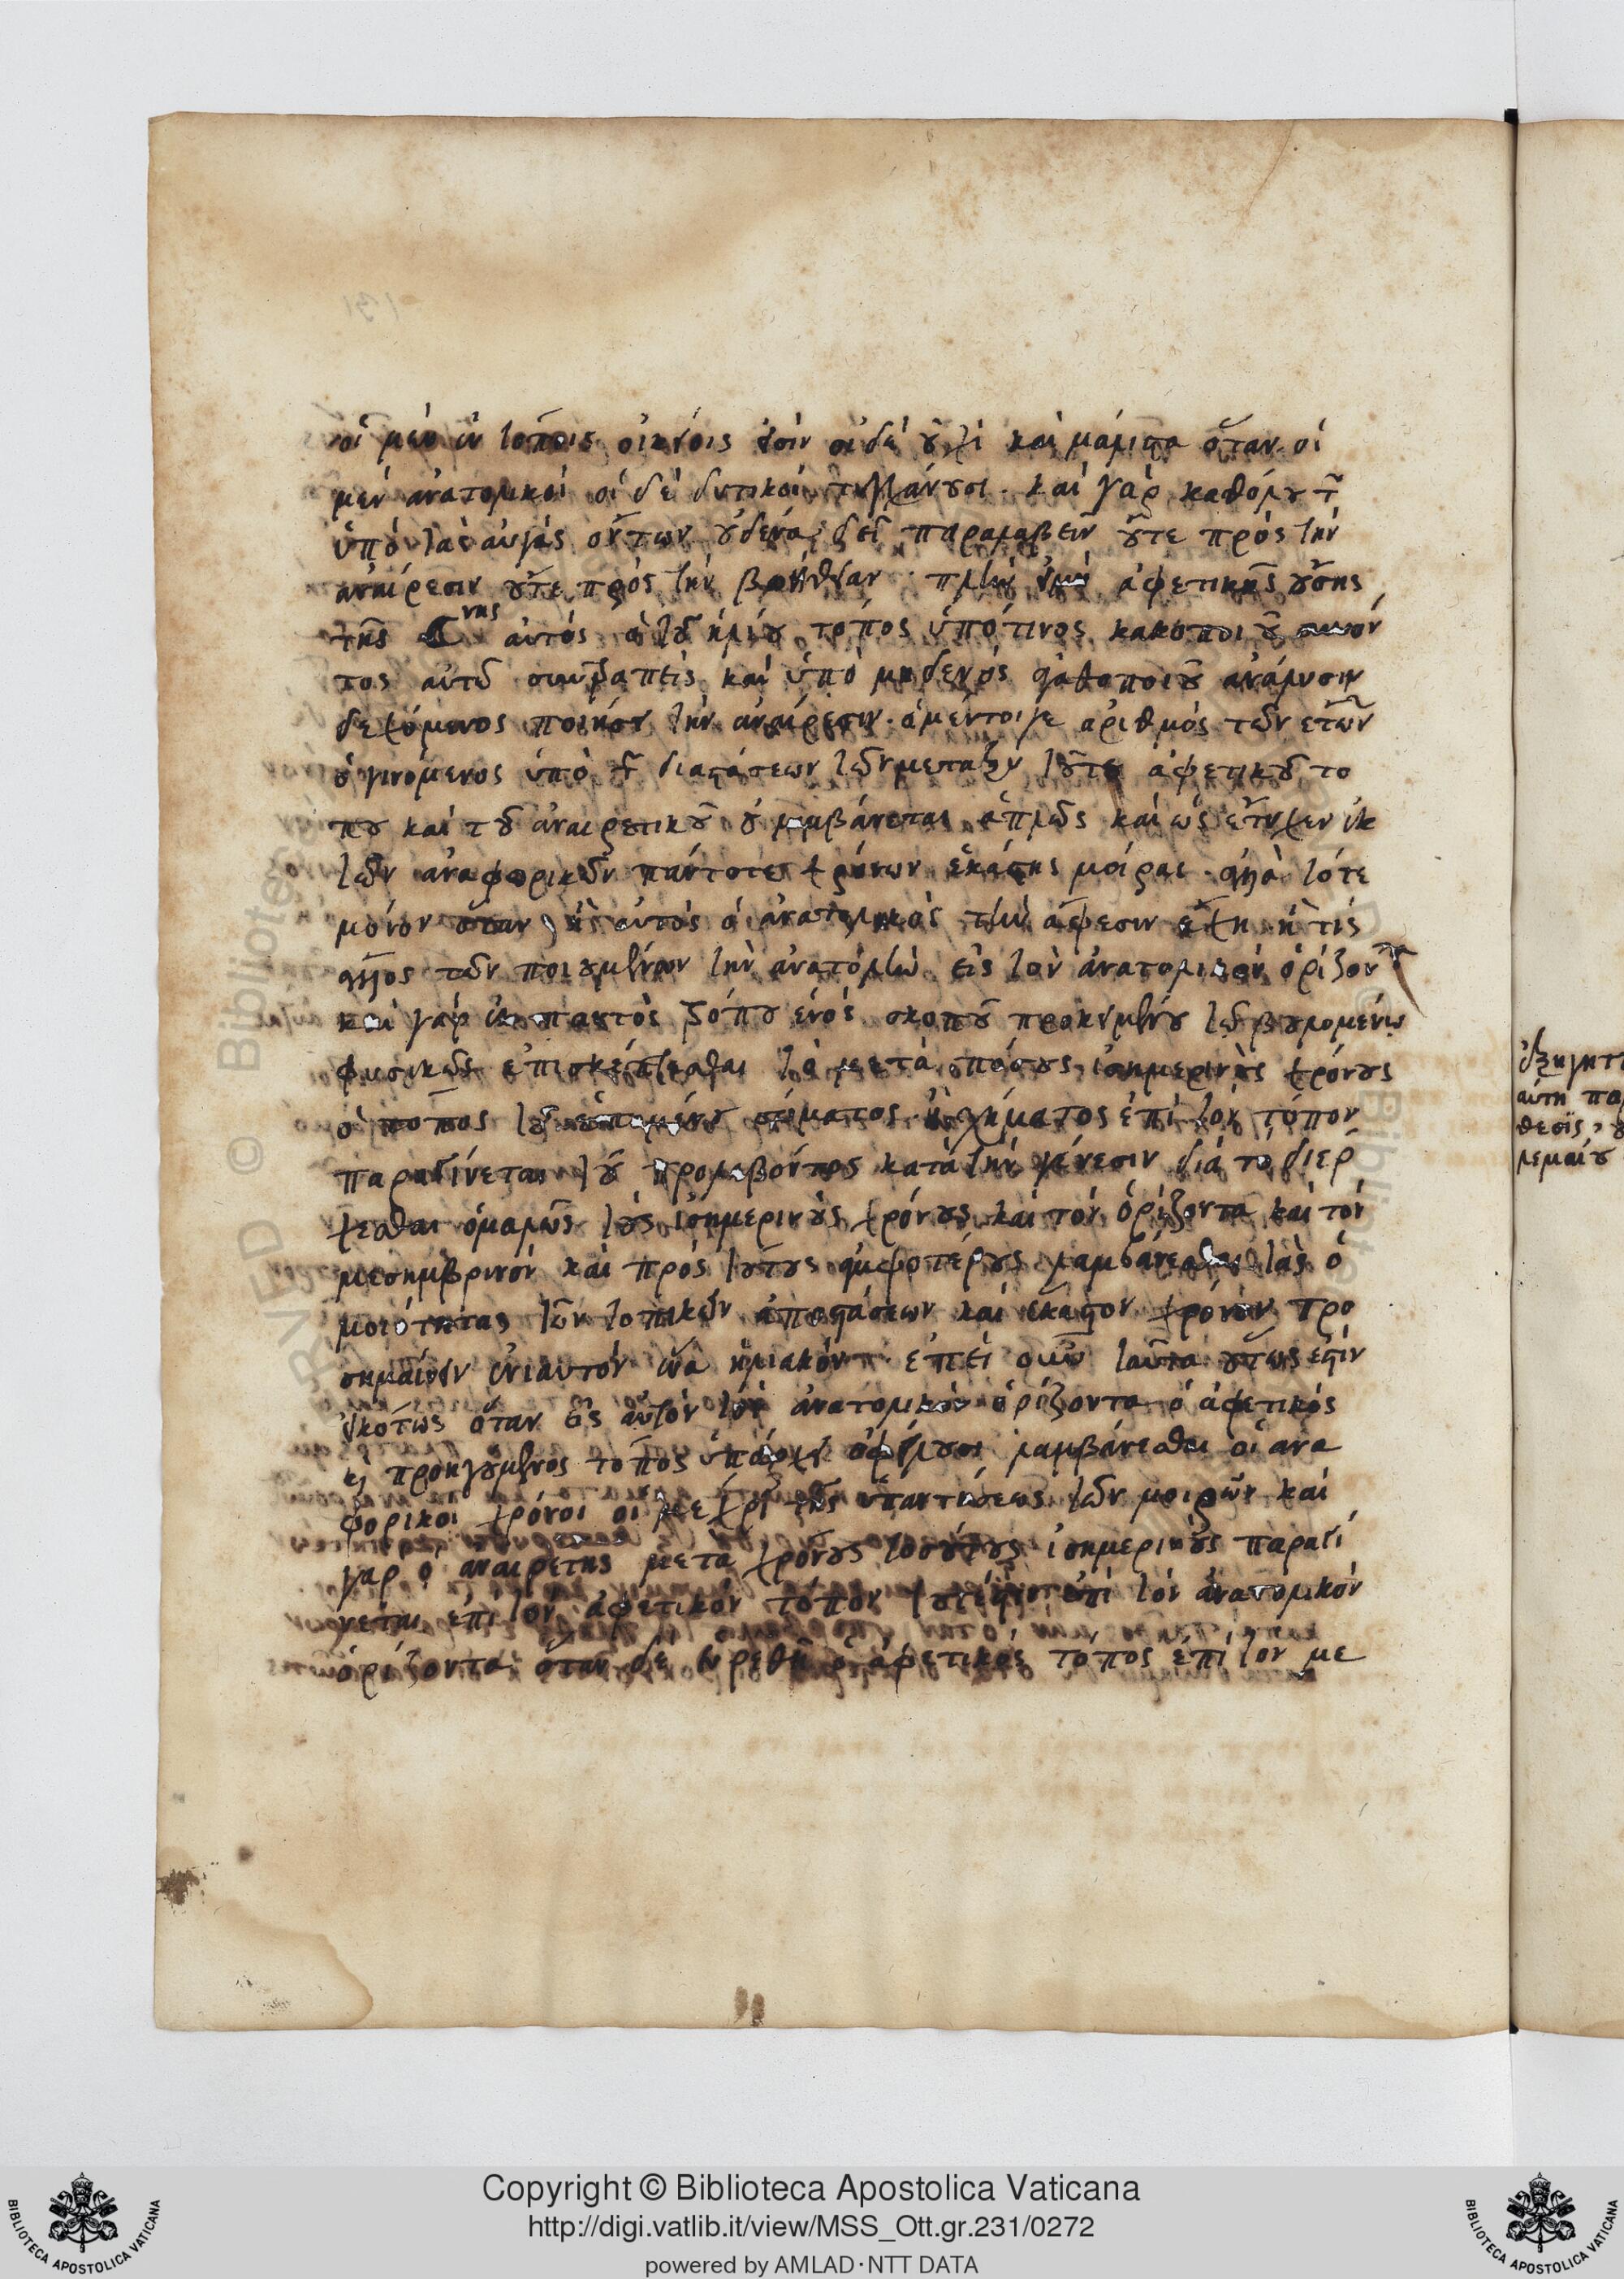 οἱ μὲν ἐν τόποις οἰκείοις εἰσὶν οἱ δὲ οὐχὶ καὶ μάλιστα ὅταν οἱ
μὲν ἀνατολικοὶ οἱ δὲ δυτικοὶ τυγχάνουσι. καὶ γὰρ καθόλου τῶν
ὑπὸ τὰς αὐγὰς ὄντων οὐδένα δεῖ παραλαβεῖν οὔτε πρὸς τὴν
ἀναίρεσιν οὔτε πρὸς τὴν βοήθειαν. πλὴν εἰ μὴ ἀφετικῆς οὔσης
τῆς ☾νης αὐτὸς ὁ τοῦ ἡλίου τόπος ὑπό τινος κακοποιοῦ συνόν
τος αὐτῷ συμβλαπτεὶς καὶ ὑπὸ μηδενὸς ἀγαθοποιοῦ ἀνάλυσιν
δεχόμενος ποιῆσαι τὴν ἀναίρεσιν. ὁ μέντοιγε ἀριθμὸς τῶν ἐτῶν
ὁ γινόμενος ὑπὸ τῶν διαστάσεων τῶν μεταξὺ τοῦ τε ἀφετικοῦ τό
που καὶ τοῦ ἀναιρετικοῦ οὐ λαμβάνεται ἁπλῶς καὶ ὡς ἔτυχεν ἐκ
τῶν ἀναφορικῶν πάντοτε χρόνων ἑκάστης μοίρας. ἀλλὰ τότε
μόνον ὅταν ἢ αὐτὸς ὁ ἀνατολικὸς τὴν ἄφεσιν ἔχῃ ἤ τις
ἄλλος τῶν ποιουμένων τὴν ἀνατολὴν εἰς τὸν ἀνατολικὸν ὁρίζοντα
καὶ γὰρ ἐκ παντὸς τρόπου ἑνὸς σκοποῦ προκειμένου τῷ βουλομένῳ
φυσικῶς ἐπισκέπτεσθαι τὸ μετὰ πόσους ἰσημερινοὺς χρόνους
ὁ τόπος τοῦ ἑπομένου σώματος ἢ σχήματος ἐπὶ τὸν τόπον
παραγίνεται τοῦ προλαβόντος κατὰ τὴν γένεσιν διὰ τὸ διέρ
χεσθαι ὁμαλῶς τοὺς ἰσημερινοὺς χρόνους καὶ τὸν ὁρίζοντα καὶ τὸν
μεσημβρινὸν καὶ πρὸς τούτους ἀμφοτέρους λαμβάνεσθαι τὰς ὁ
μοιότητας τῶν τοπικῶν ἀποστάσεων καὶ ἕκαστον χρόνον προ
σημαίνειν ἐνιαυτὸν ἕνα ἡλιακόν. ἐπεὶ οὖν ταῦτα οὕτως ἐστὶν
εἰκότως ὅταν εἰς αὐτὸν τὸν ἀνατολικὸν ὁρίζοντα ὁ ἀφετικὸς
καὶ προηγούμενος τόπος ὑπάρχῃ ὀφείλουσι λαμβάνεσθαι οἱ ἀνα
φορικοὶ χρόνοι οἱ μέχρι τῆς ὑπαντήσεως τῶν μοιρῶν καὶ
γὰρ ὁ ἀναιρέτης μετὰ χρόνους τοσούτους ἰσημερινοὺς παραγί
νεται ἐπὶ τὸν ἀφετικὸν τόπον τουτέστιν ἐπὶ τὸν ἀνατολικὸν
ὁρίζοντα. ὅταν δὲ εὑρεθῇ ὁ ἀφετικὸς τόπος ἐπὶ τὸν με
αὐτὴ
Copyright © Biblioteca Apostolica Vaticana
http://digi.vatlib.it/view/MSS_Ott.gr.231/0272
powered by AMLAD·NTT DATA
BIBLIOTECA APOSTOLICA VATICANA
BIBLIOTECA APOSTOLICA VATICANA